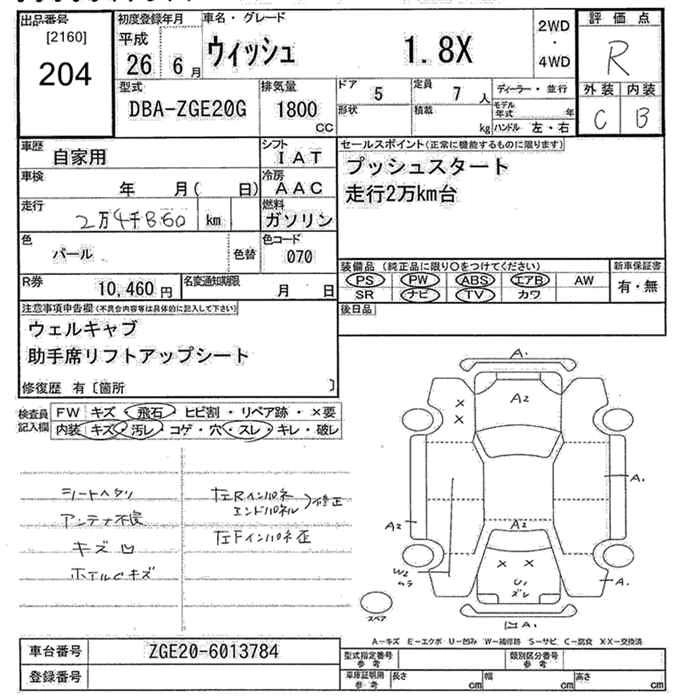 出品番号
[2160]
204
初度登録年月
平成
26 6月
車名・グレード
ウィッシュ 1.8X
2WD
・
4WD
評価点
R
外装 内装
C B
型式
DBA-ZGE20G
排気量
1800
CC
ドア 5
形状
定員 7 人
積載 kg
ディーラー・並行
モデル年式 年
ハンドル 左・右
車歴
自家用
シフト
IAT
車検
年 月( 日)
冷房
AAC
走行
2万4千860 km
燃料
ガソリン
色
パール
色替
色コード
070
R券
10,460円
名変通知期限
月 日
セールスポイント(正常に機能するものに限ります)
プッシュスタート
走行2万km台
装備品(純正品に限り○をつけてください)
PS PW ABS エアB AW
SR ナビ TV カワ
新車保証書
有・無
後日品
注意事項申告欄(不具合内容等は具体的に記入して下さい)
ウェルキャブ
助手席リフトアップシート
修復歴 有〔箇所 〕
検査員
記入欄
FW キズ・飛石・ヒビ割・リペア跡・×要
内装 キズ・汚レ・コゲ・穴・スレ・キレ・破レ
シートヘタリ
アンテナ不良
キズ凹
ホイルCキズ
左Rインパネ
エンドパネル 修正
左Fインパネ歪
A.
A2
× ×
A.
A2
A2
W2
ムラ
× ×
U1
ズレ
A.
A.
スペア
A―キズ E―エクボ U―凹み W―補修跡 S―サビ C―腐食 XX―交換済
車台番号 ZGE20-6013784
登録番号
型式指定番号
参考
類別区分番号
参考
車庫証明用
参考
長さ cm 幅 cm 高さ cm